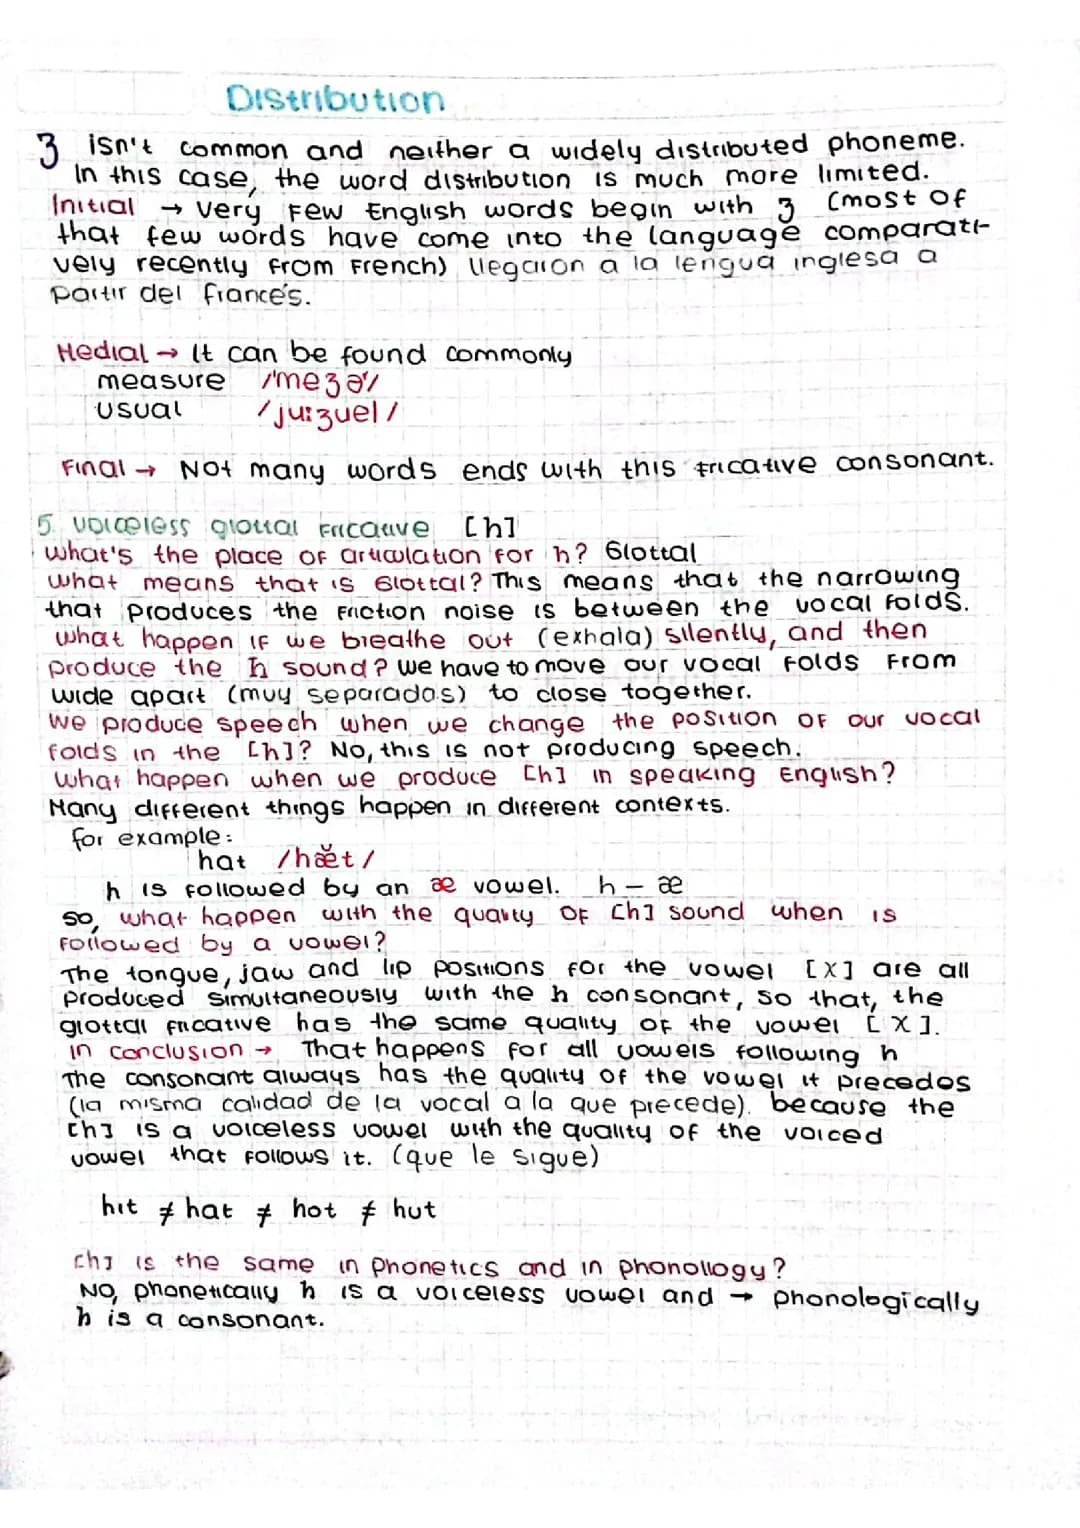 Distribution
ʒ isn't common and neither a widely distributed phoneme.
In this case, the word distribution is much more limited.
Initial → very few English words begin with ʒ (most of
that few words have come into the language comparati-
vely recently from French) llegaron a la lengua inglesa a
partir del francés.
Medial → It can be found commonly
measure /'meʒəʳ/
usual /ju:ʒuel/
Final → Not many words ends with this fricative consonant.
5. voiceless glottal fricative [h]
what's the place of articulation for h? Glottal
what means that is Glottal? This means that the narrowing
that produces the friction noise is between the vocal folds.
what happen if we breathe out (exhala) silently, and then
produce the h sound? we have to move our vocal folds from
wide apart (muy separadas) to close together.
we produce speech when we change the position of our vocal
folds in the [h]? No, this is not producing speech.
what happen when we produce [h] in speaking English?
Many different things happen in different contexts.
for example:
hat /hæt/
h is followed by an æ vowel. h – æ
so, what happen with the quality of [h] sound when is
followed by a vowel?
The tongue, jaw and lip positions for the vowel [X] are all
produced simultaneously with the h consonant, so that, the
glottal fricative has the same quality of the vowel [X].
in conclusion → That happens for all vowels following h
The consonant always has the quality of the vowel it precedes
(la misma calidad de la vocal a la que precede). because the
[h] is a voiceless vowel with the quality of the voiced
vowel that follows it. (que le sigue)
hit ≠ hat ≠ hot ≠ hut
[h] is the same in phonetics and in phonollogy?
No, phonetically h is a voiceless vowel and → phonologically
h is a consonant.